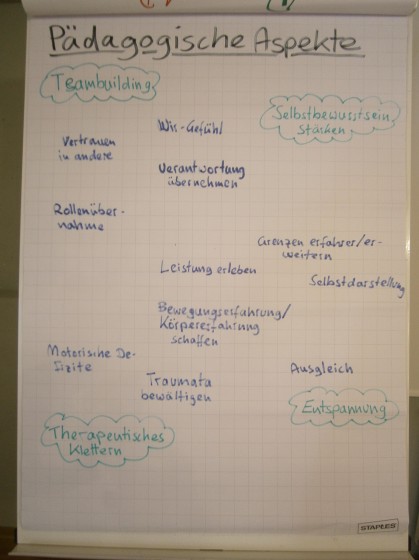 Pädagogische Aspekte
Teambuilding
Selbstbewusstsein
stärken
Wir-Gefühl
Vertrauen
in andere
Verantwortung
übernehmen
Rollenüber-
nahme
Grenzen erfahren/er-
weitern
Leistung erleben
Selbstdarstellung
Bewegungserfahrung/
Körpererfahrung
schaffen
Motorische De-
fizite
Ausgleich
Traumata
bewältigen
Entspannung
Therapeutisches
Klettern
STAPLES